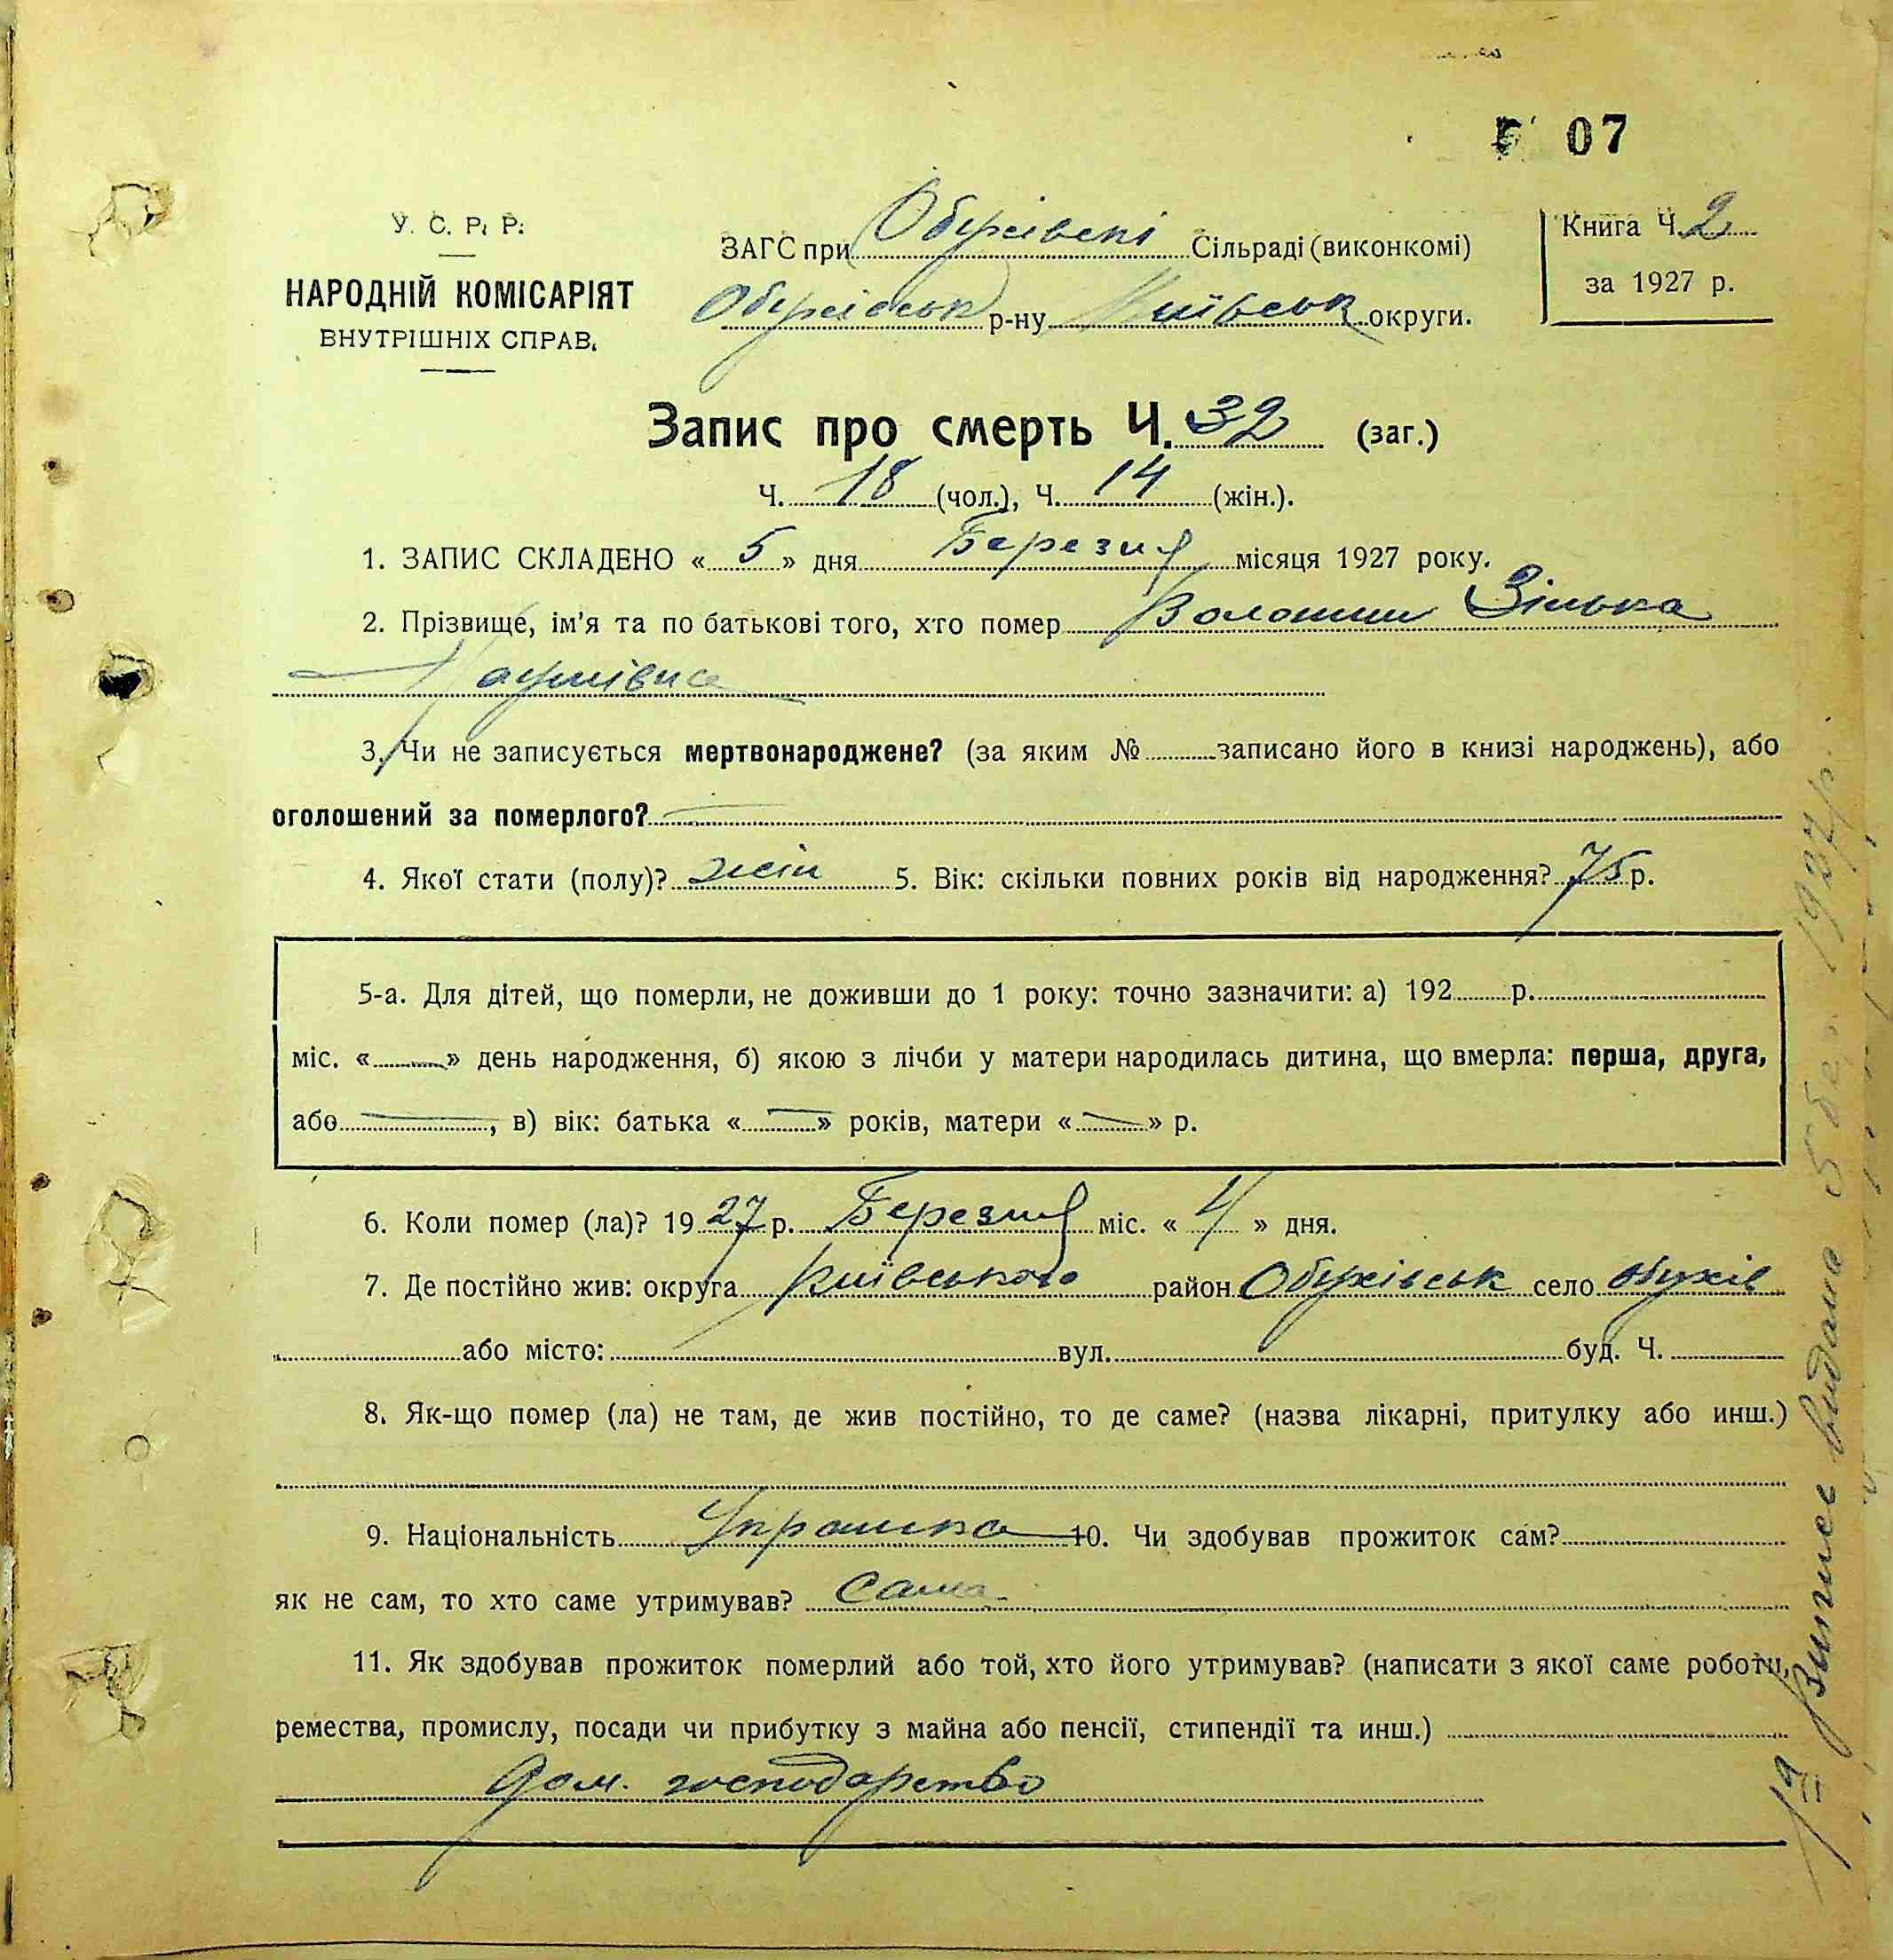 07
У. С. Р. Р.
НАРОДНІЙ КОМІСАРІЯТ
ВНУТРІШНІХ СПРАВ.
ЗАГС при Обухівскі Сільраді (виконкомі)
Обухівськ р-ну Київськ округи.
Книга Ч. 2
за 1927 р.
Запис про смерть Ч. 32 (заг.)
Ч. 18 (чол.), Ч. 14 (жін.).
1. ЗАПИС СКЛАДЕНО « 5 » дня Березня місяця 1927 року.
2. Прізвище, ім'я та по батькові того, хто помер Волошин Зінька
Наумівна
3. Чи не записується мертвонароджене? (за яким № записано його в книзі народжень), або
оголошений за померлого?
4. Якої стати (полу)? жін 5. Вік: скільки повних років від народження? 75 р.
5-а. Для дітей, що померли, не доживши до 1 року: точно зазначити: а) 192 р.
міс. « » день народження, б) якою з лічби у матери народилась дитина, що вмерла: перша, друга,
або , в) вік: батька « » років, матери « » р.
6. Коли помер (ла)? 1927 р. Березня міс. « 4 » дня.
7. Де постійно жив: округа Київського район Обухівськ село Обухів
або місто: вул. буд. Ч.
8. Як-що помер (ла) не там, де жив постійно, то де саме? (назва лікарні, притулку або инш.)
9. Національність Українка 10. Чи здобував прожиток сам?
як не сам, то хто саме утримував? Сама
11. Як здобував прожиток померлий або той, хто його утримував? (написати з якої саме роботи,
ремества, промислу, посади чи прибутку з майна або пенсії, стипендії та инш.)
Дом. господарство
Витяг видано 5 бер. 1927 р.